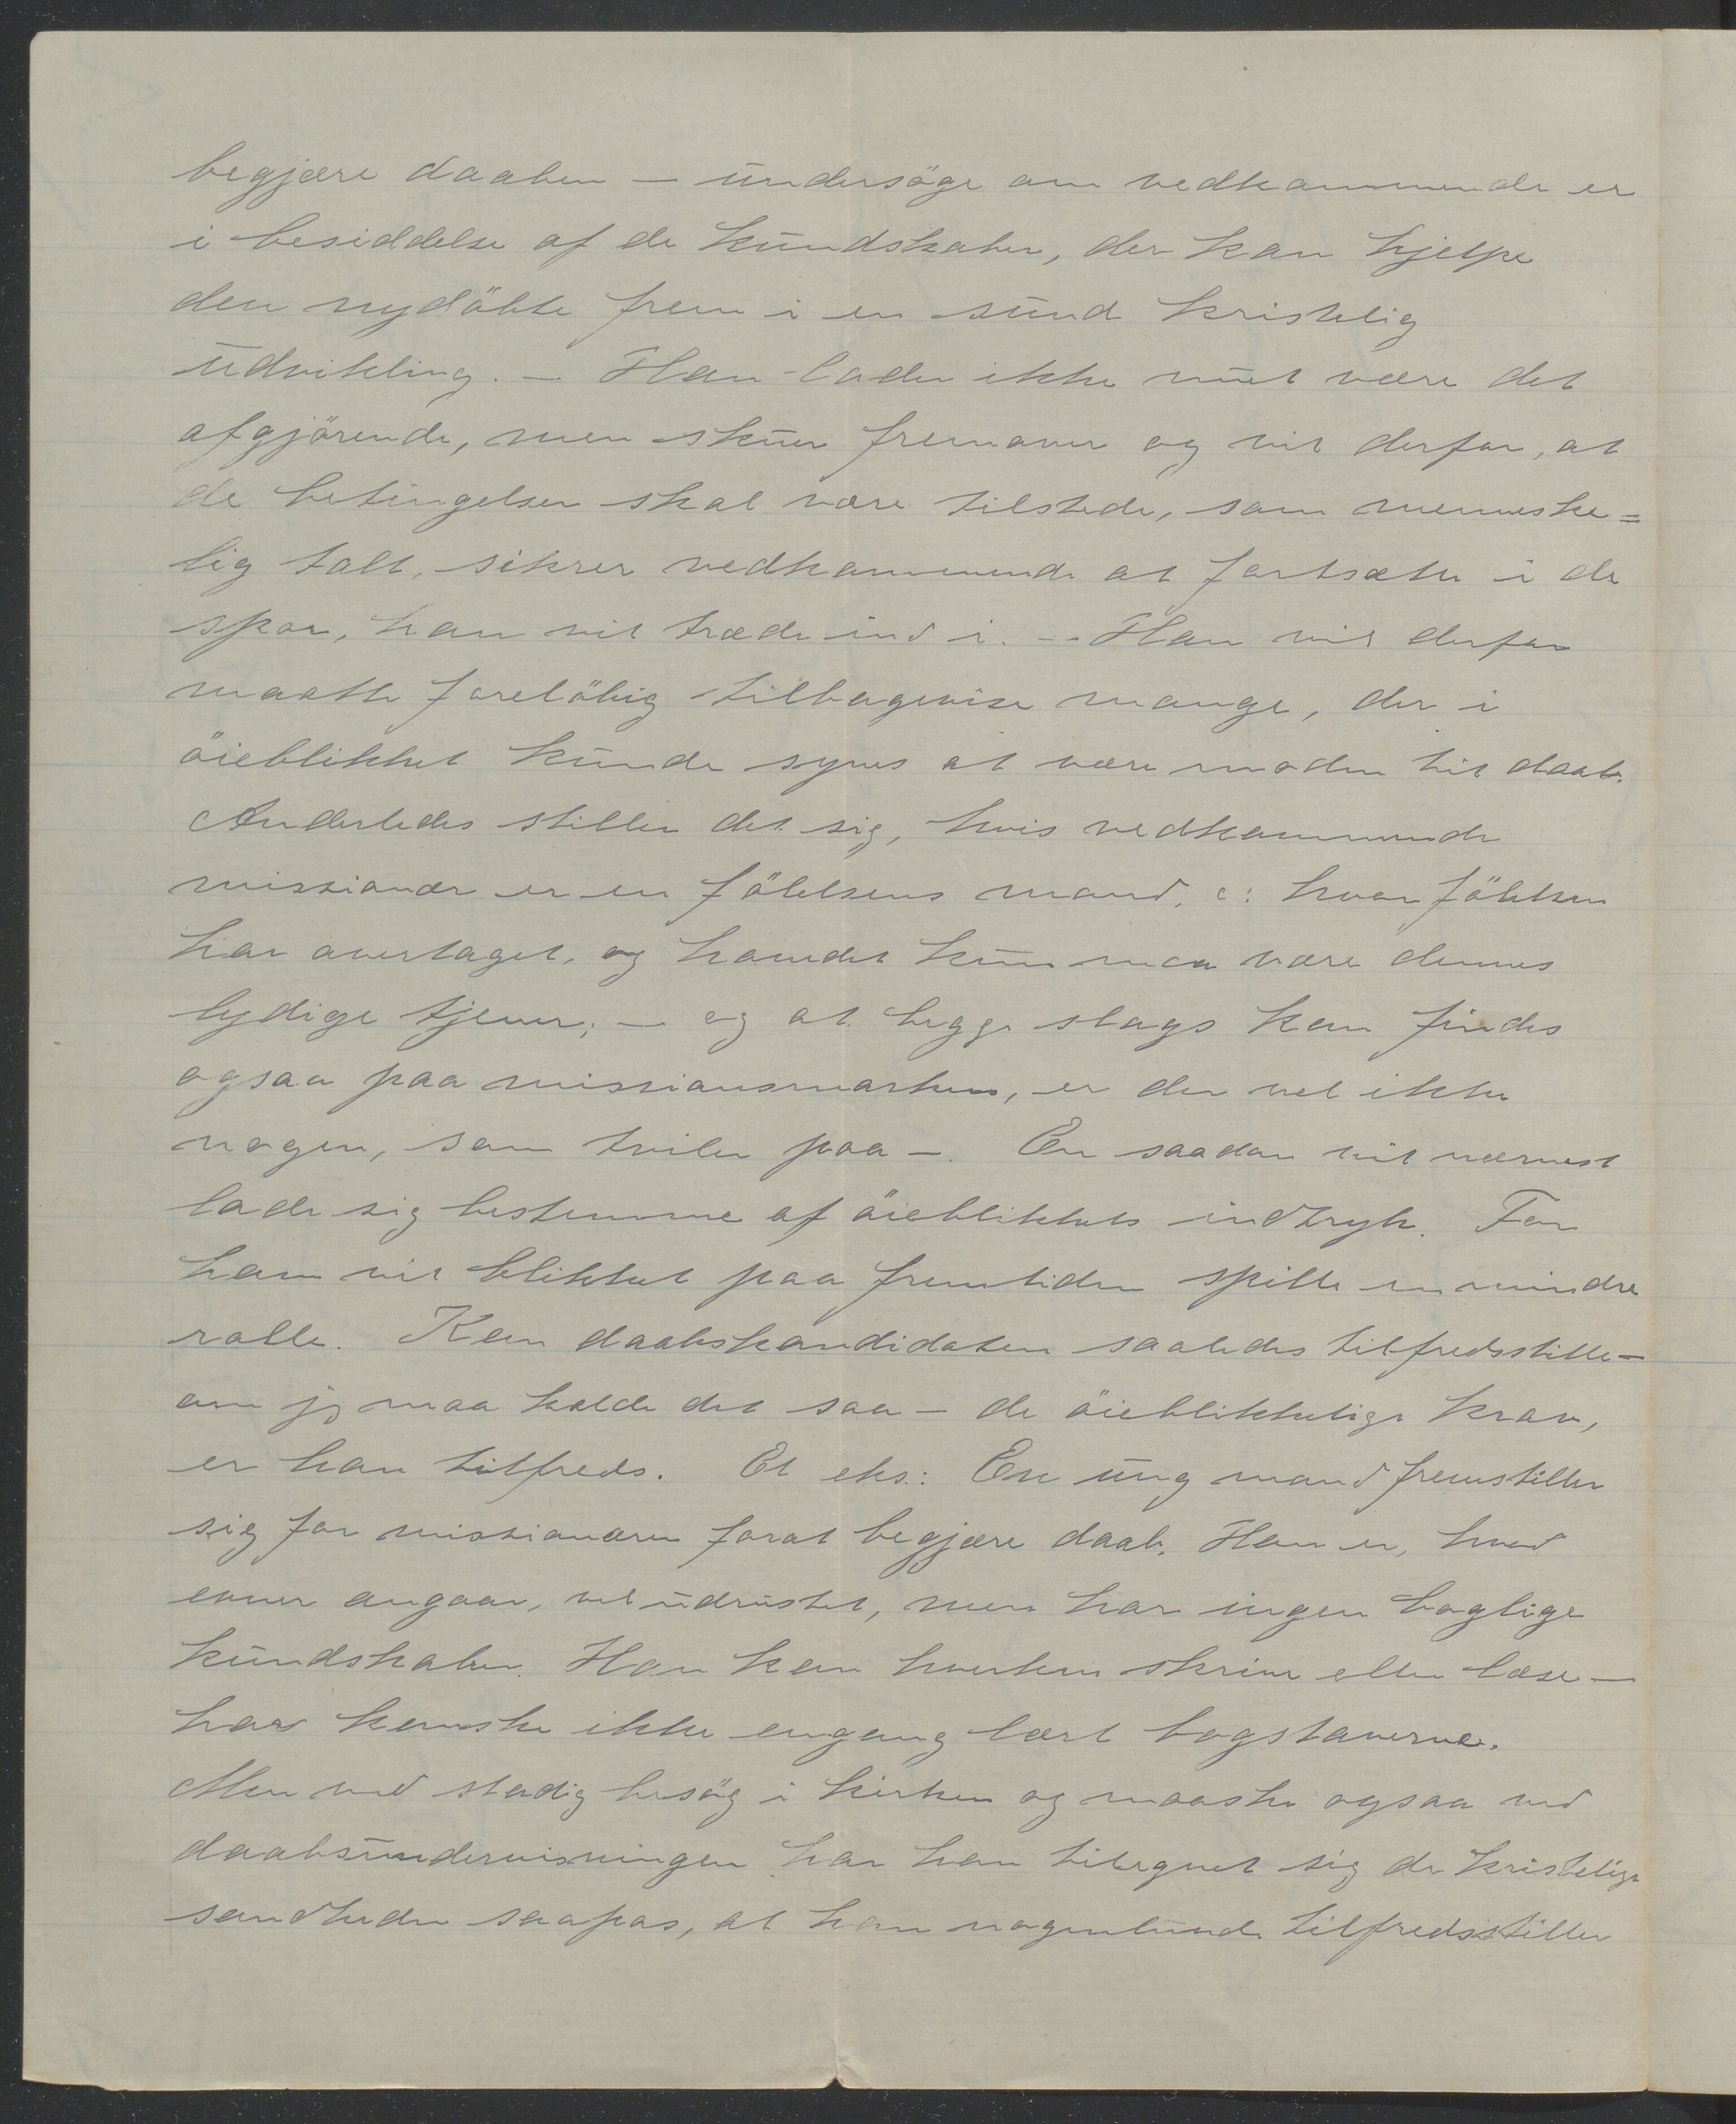 begjære daaben — undersöge om vedkommende er
i besiddelse af de kundskaber, der kan hjelpe
den nydöbte frem i en sund kristelig
udvikling. — Han lader ikke nuet være det
afgjörende, men skuer fremover og vil derfor, at
de betingelser skal være tilstede, som menneske=
lig talt, sikrer vedkommende at fortsætte i de
spor, han vil træde ind i. — Han vil derfor
maatte forelöbig tilbagevise mange, der i
öieblikket kunde synes at være moden til daab.
Anderledes stiller det sig, hvis vedkommende
missionær er en fölelsens mand, ɔ: hvor fölelsen
har overtaget, og hovedet kun maa være dennes
lydige tjener; — og at begge slags kan findes
ogsaa paa missionsmarken, er der vel ikke
nogen, som tviler paa —. En saadan vil nærmest
lade sig bestemme af öieblikkets indtryk. For
ham vil blikket paa fremtiden spille en mindre
rolle. Kan daabskandidaten saaledes tilfredsstille —
om jeg maa kalde det saa — de öieblikkelige krav,
er han tilfreds. Et eks.: En ung mand fremstiller
sig for missionæren forat begjære daab. Han er, hvad
evner angaar, vel udrustet, men har ingen boglige
kundskaber. Han kan hverken skrive eller læse —
har kanske ikke engang lært bogstaverne.
Men ved stadig besög i kirken og maaske ogsaa ved
daabsundervisningen har han tilegnet sig de kristelige
sandheder saapas, at han nogenlunde tilfredsstiller